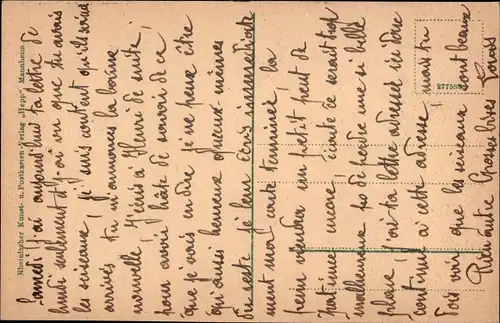 Rheinischer Kunst- u. Postkarten-Verlag „Hepp“, Mannheim.
Samedi J'ai aujourd'hui ta lettre de
lundi seulement et j'ai vu que tu avais
les oiseaux, je suis content qu'ils soient
arrivés tu m'annonces la bonne
nouvelle j'écris à Henri de suite,
pour avoir hâte de savoir de ce
que je vais en dire je ne peux être
qu'aussi heureux qu'eux-mêmes
Du reste je leur écris immédiate
ment ma carte terminée, la
peur viendra un petit peu de
partance encore, écoute ce serait trop
malheureux de perdre une si belle
place, j'ai ta lettre adressée ici donc
continue à cette adresse, mais tu
vois voir que les oiseaux sont beaux
Rien autre Grosses bises Louis
277586